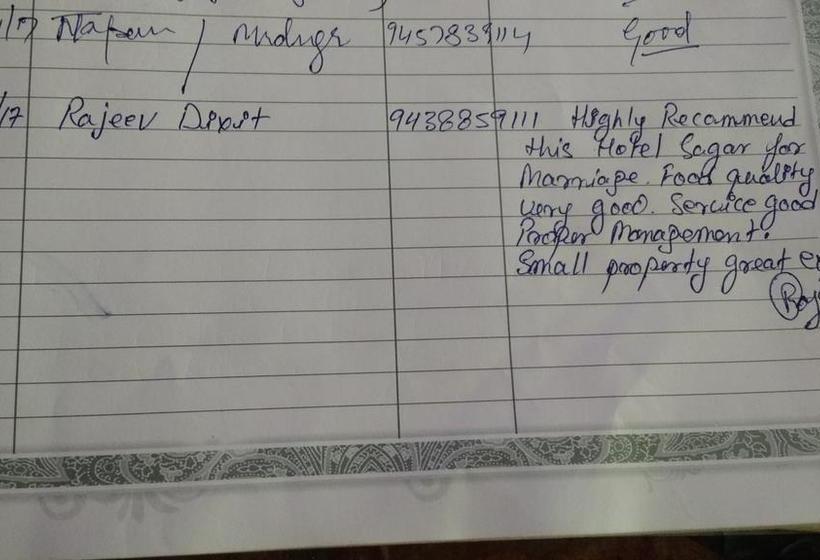 /17 / 9457839114 Good
/17 Rajeev Dixit 9438859111 Highly Recammend
this Hotel Sagar for
Marriage. Food quality
very good. Service good
Proper Management.
Small property great